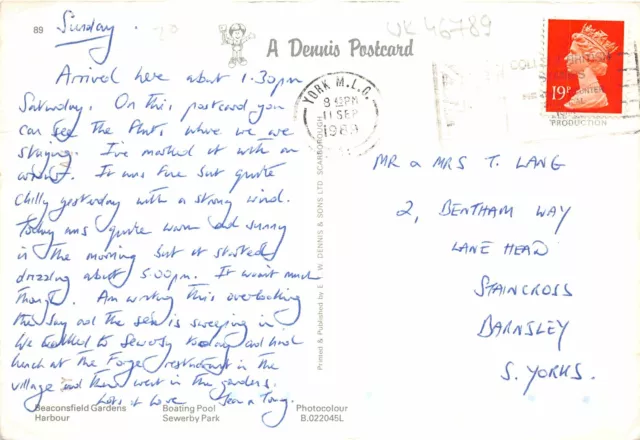 89
Sunday.
Arrived here about 1.30pm
Saturday. On this postcard you
can see the flats where we are
staying. I've marked it with an
It was fine but quite
chilly yesterday with a strong wind.
Today was quite warm and sunny
in the morning but it started
drizzling about 5.00pm. It wasn't much
though. Am writing this overlooking
the bay and the sea is sweeping in.
We walked to Sewerby today and had
lunch at the Forge restaurant in the
village and then went in the gardens.
Lots of love Jean & Tony.
Beaconsfield Gardens
Harbour
Boating Pool
Sewerby Park
Photocolour
B.022045L
A Dennis Postcard
Printed & Published by E. T. W. DENNIS & SONS LTD. SCARBOROUGH
UK 46789
YORK M.L.O.
PM
11 SEP
1989
19P
PRODUCTION
MR & MRS T. LANG
2, BENTHAM WAY
LANE HEAD
STAINCROSS
BARNSLEY
S. YORKS.